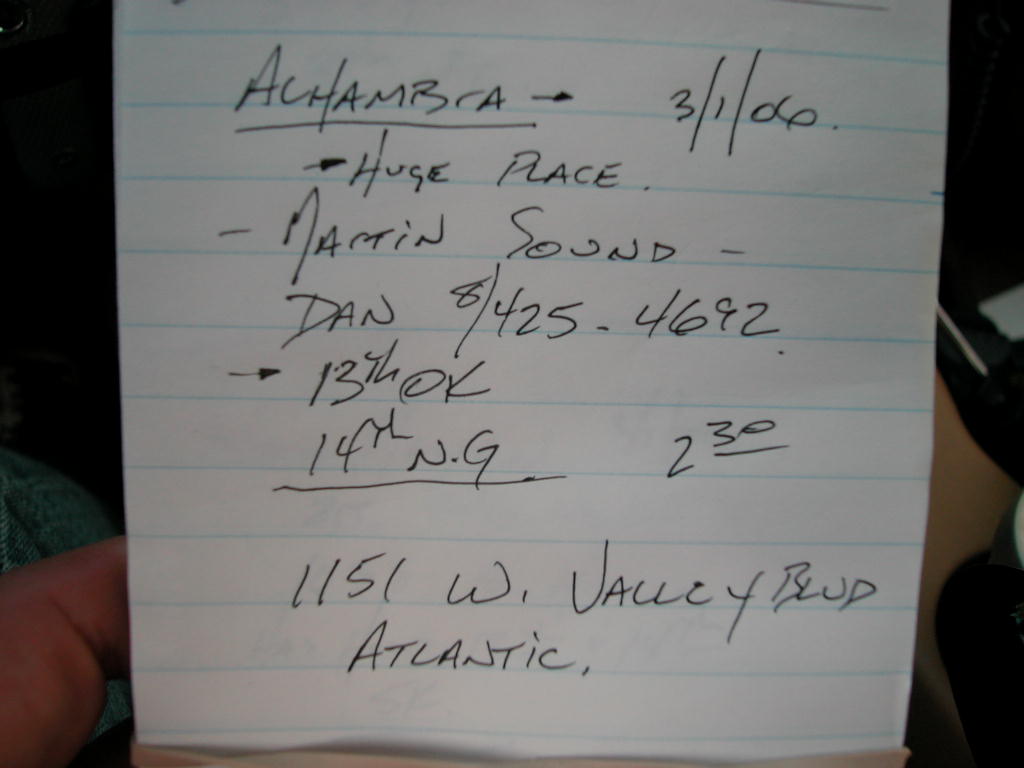 ALHAMBRA → 3/1/06.
→ HUGE PLACE.
- MARTIN SOUND -
DAN 8/425-4692.
→ 13th OK
14th N.G 2 30
1151 W. VALLEY BLVD
ATLANTIC.